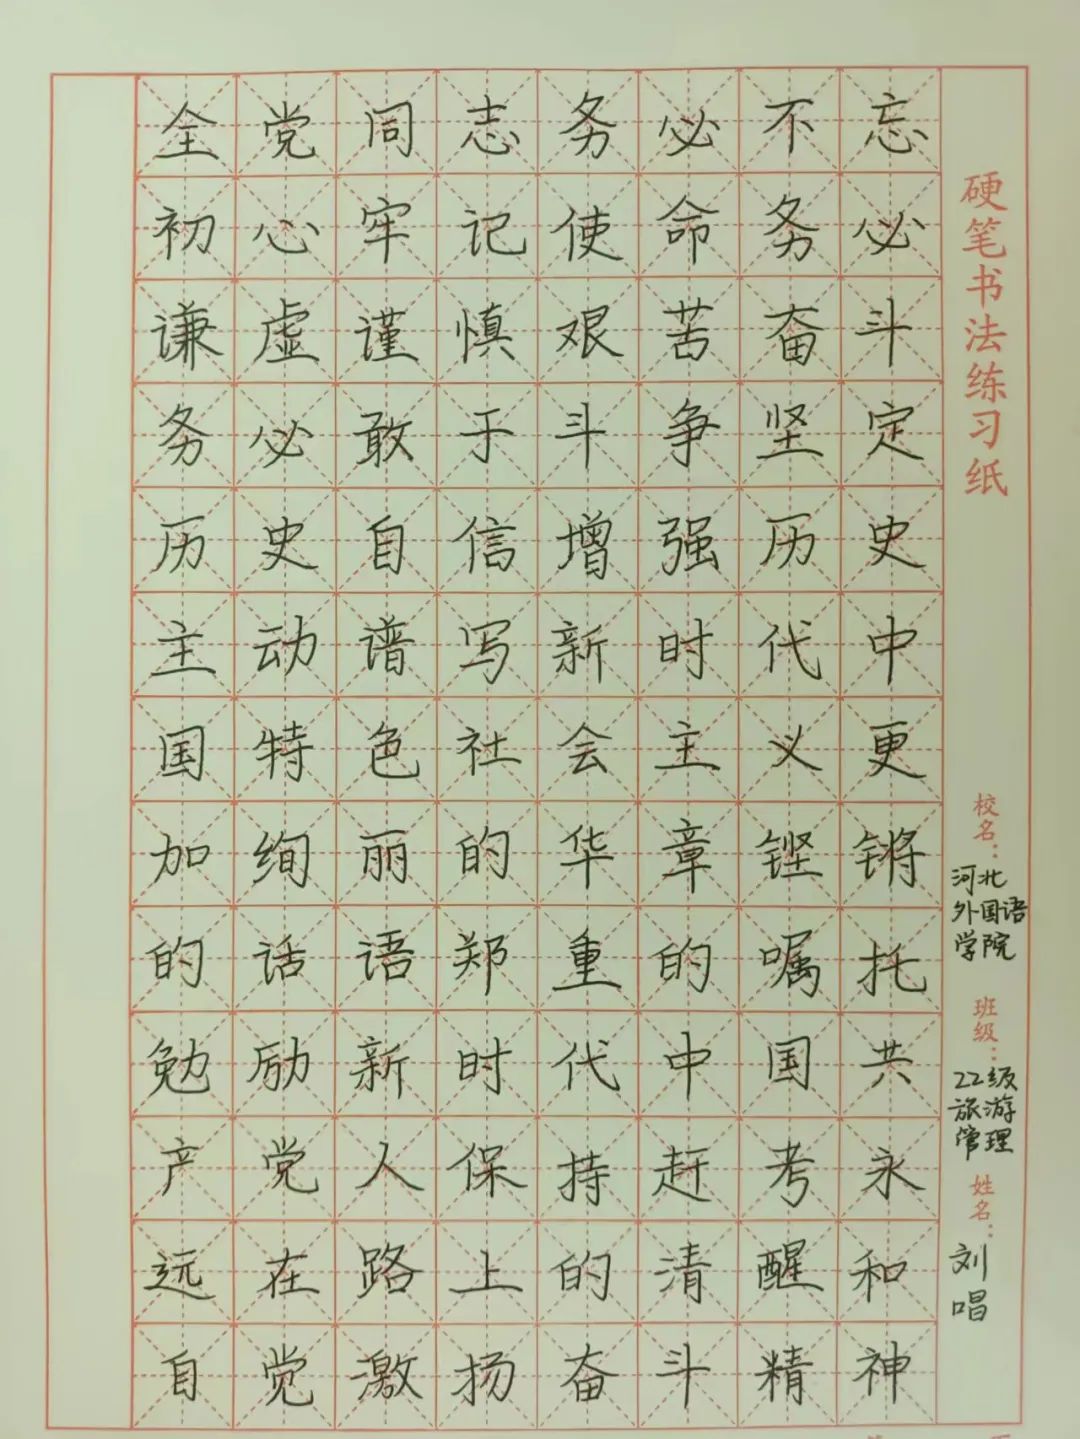 全党同志务必不忘
初心牢记使命务必
谦虚谨慎艰苦奋斗
务必敢于斗争坚定
历史自信增强历史
主动谱写新时代中
国特色社会主义更
加绚丽的华章铿锵
的话语郑重的嘱托
勉励新时代中国共
产党人保持赶考永
远在路上的清醒和
自觉激扬奋斗精神
硬笔书法练习纸
校名：
河北
外国语
学院
班级：
22级
旅游
管理
姓名：
刘
唱